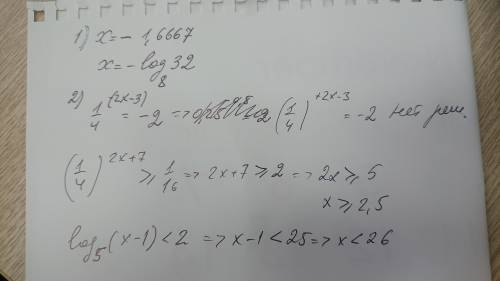 1) x = - 1,6667
x = - log₈ 32
2) 1/4 ^(2x-3) = -2 => (1/4)^+2x-3 = -2 нет реш.
(1/4)^2x+7 ⩾ 1/16 => 2x+7 ⩾ 2 => 2x ⩾ 5
x ⩾ 2,5
log₅(x-1) < 2 => x-1 < 25 => x < 26